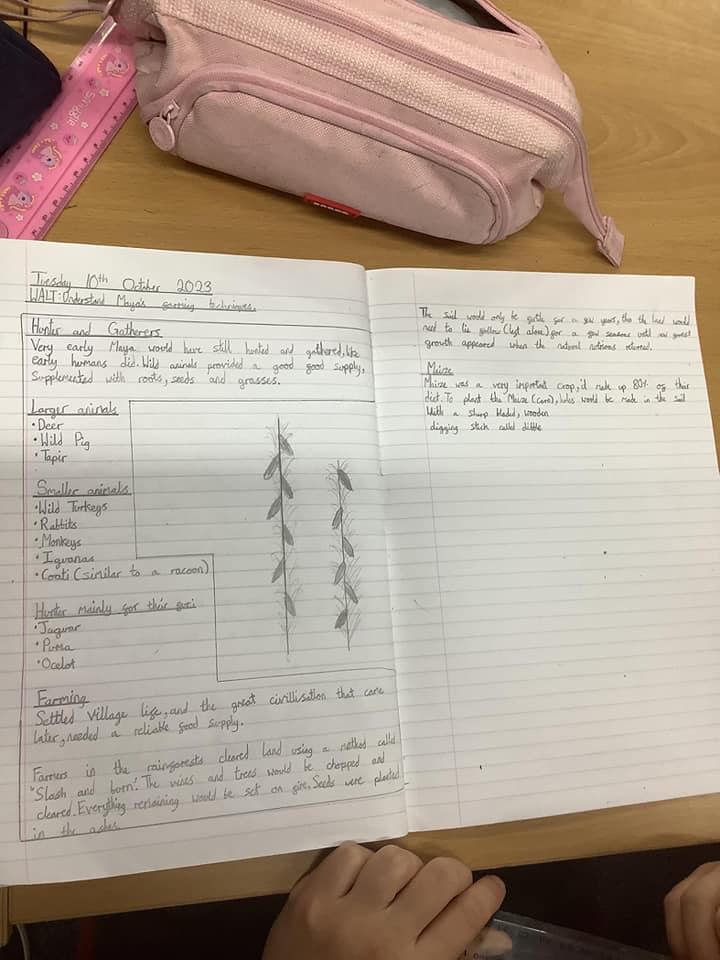 Tuesday 10th October 2023
WALT: Understand Maya's farming techniques.
Hunter and Gatherers
Very early Maya would have still hunted and gathered, like
early humans did. Wild animals provided a good food supply,
Supplemented with roots, seeds and grasses.
Larger animals
• Deer
• Wild Pig
• Tapir
Smaller animals
• Wild Turkeys
• Rabbits
• Monkeys
• Iguanas
• Coati (similar to a racoon)
Hunter mainly for their
• Jaguar
• Puma
• Ocelot
Farming
Settled Village life, and the great civillisation that came
later, needed a reliable food supply.
Farmers in the rainforests cleared land using a method called
"Slash and born'. The vines and trees would be chopped and
cleared. Everything remaining would be set on fire. Seeds were planted
in the ashes
The soil would only be for a few years, the land would
need to lie fallow (left alone) for a few seasons until new
growth appeared when the natural returned.
Maize
Maize was a very important crop, it made up 80% of their
diet. To plant the Maize (corn), holes would be made in the soil
With a sharp bladed, wooden
digging stick called dibble